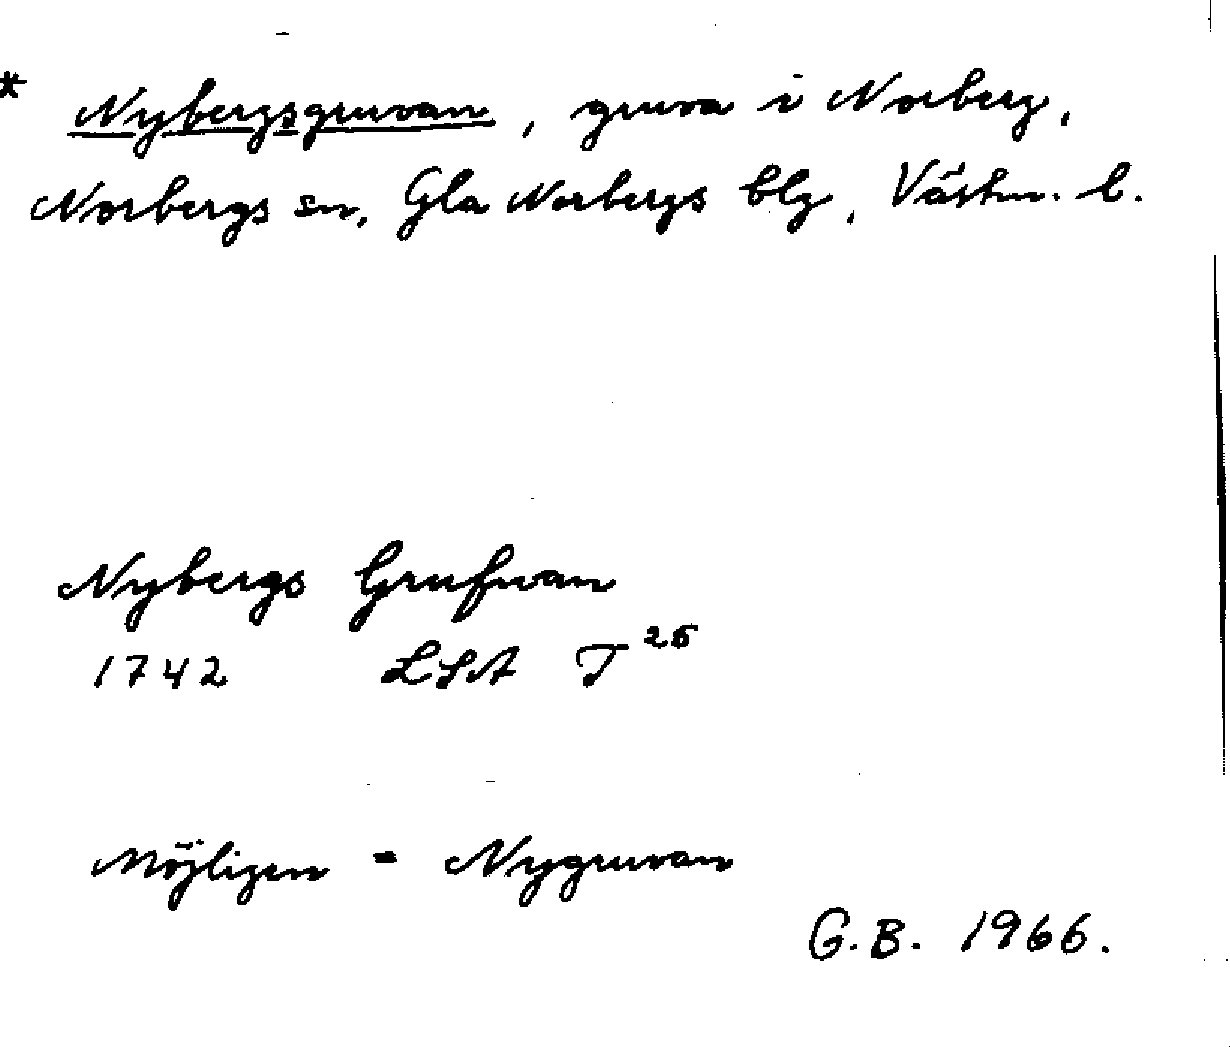 * Nybergsgruvan, gruva i Norberg,
Norbergs sn, Gla Norbergs blg, Västm. l.
Nybergs Grufwan
1742 LSA T 25
Möjligen = Nygruvan
G.B. 1966.